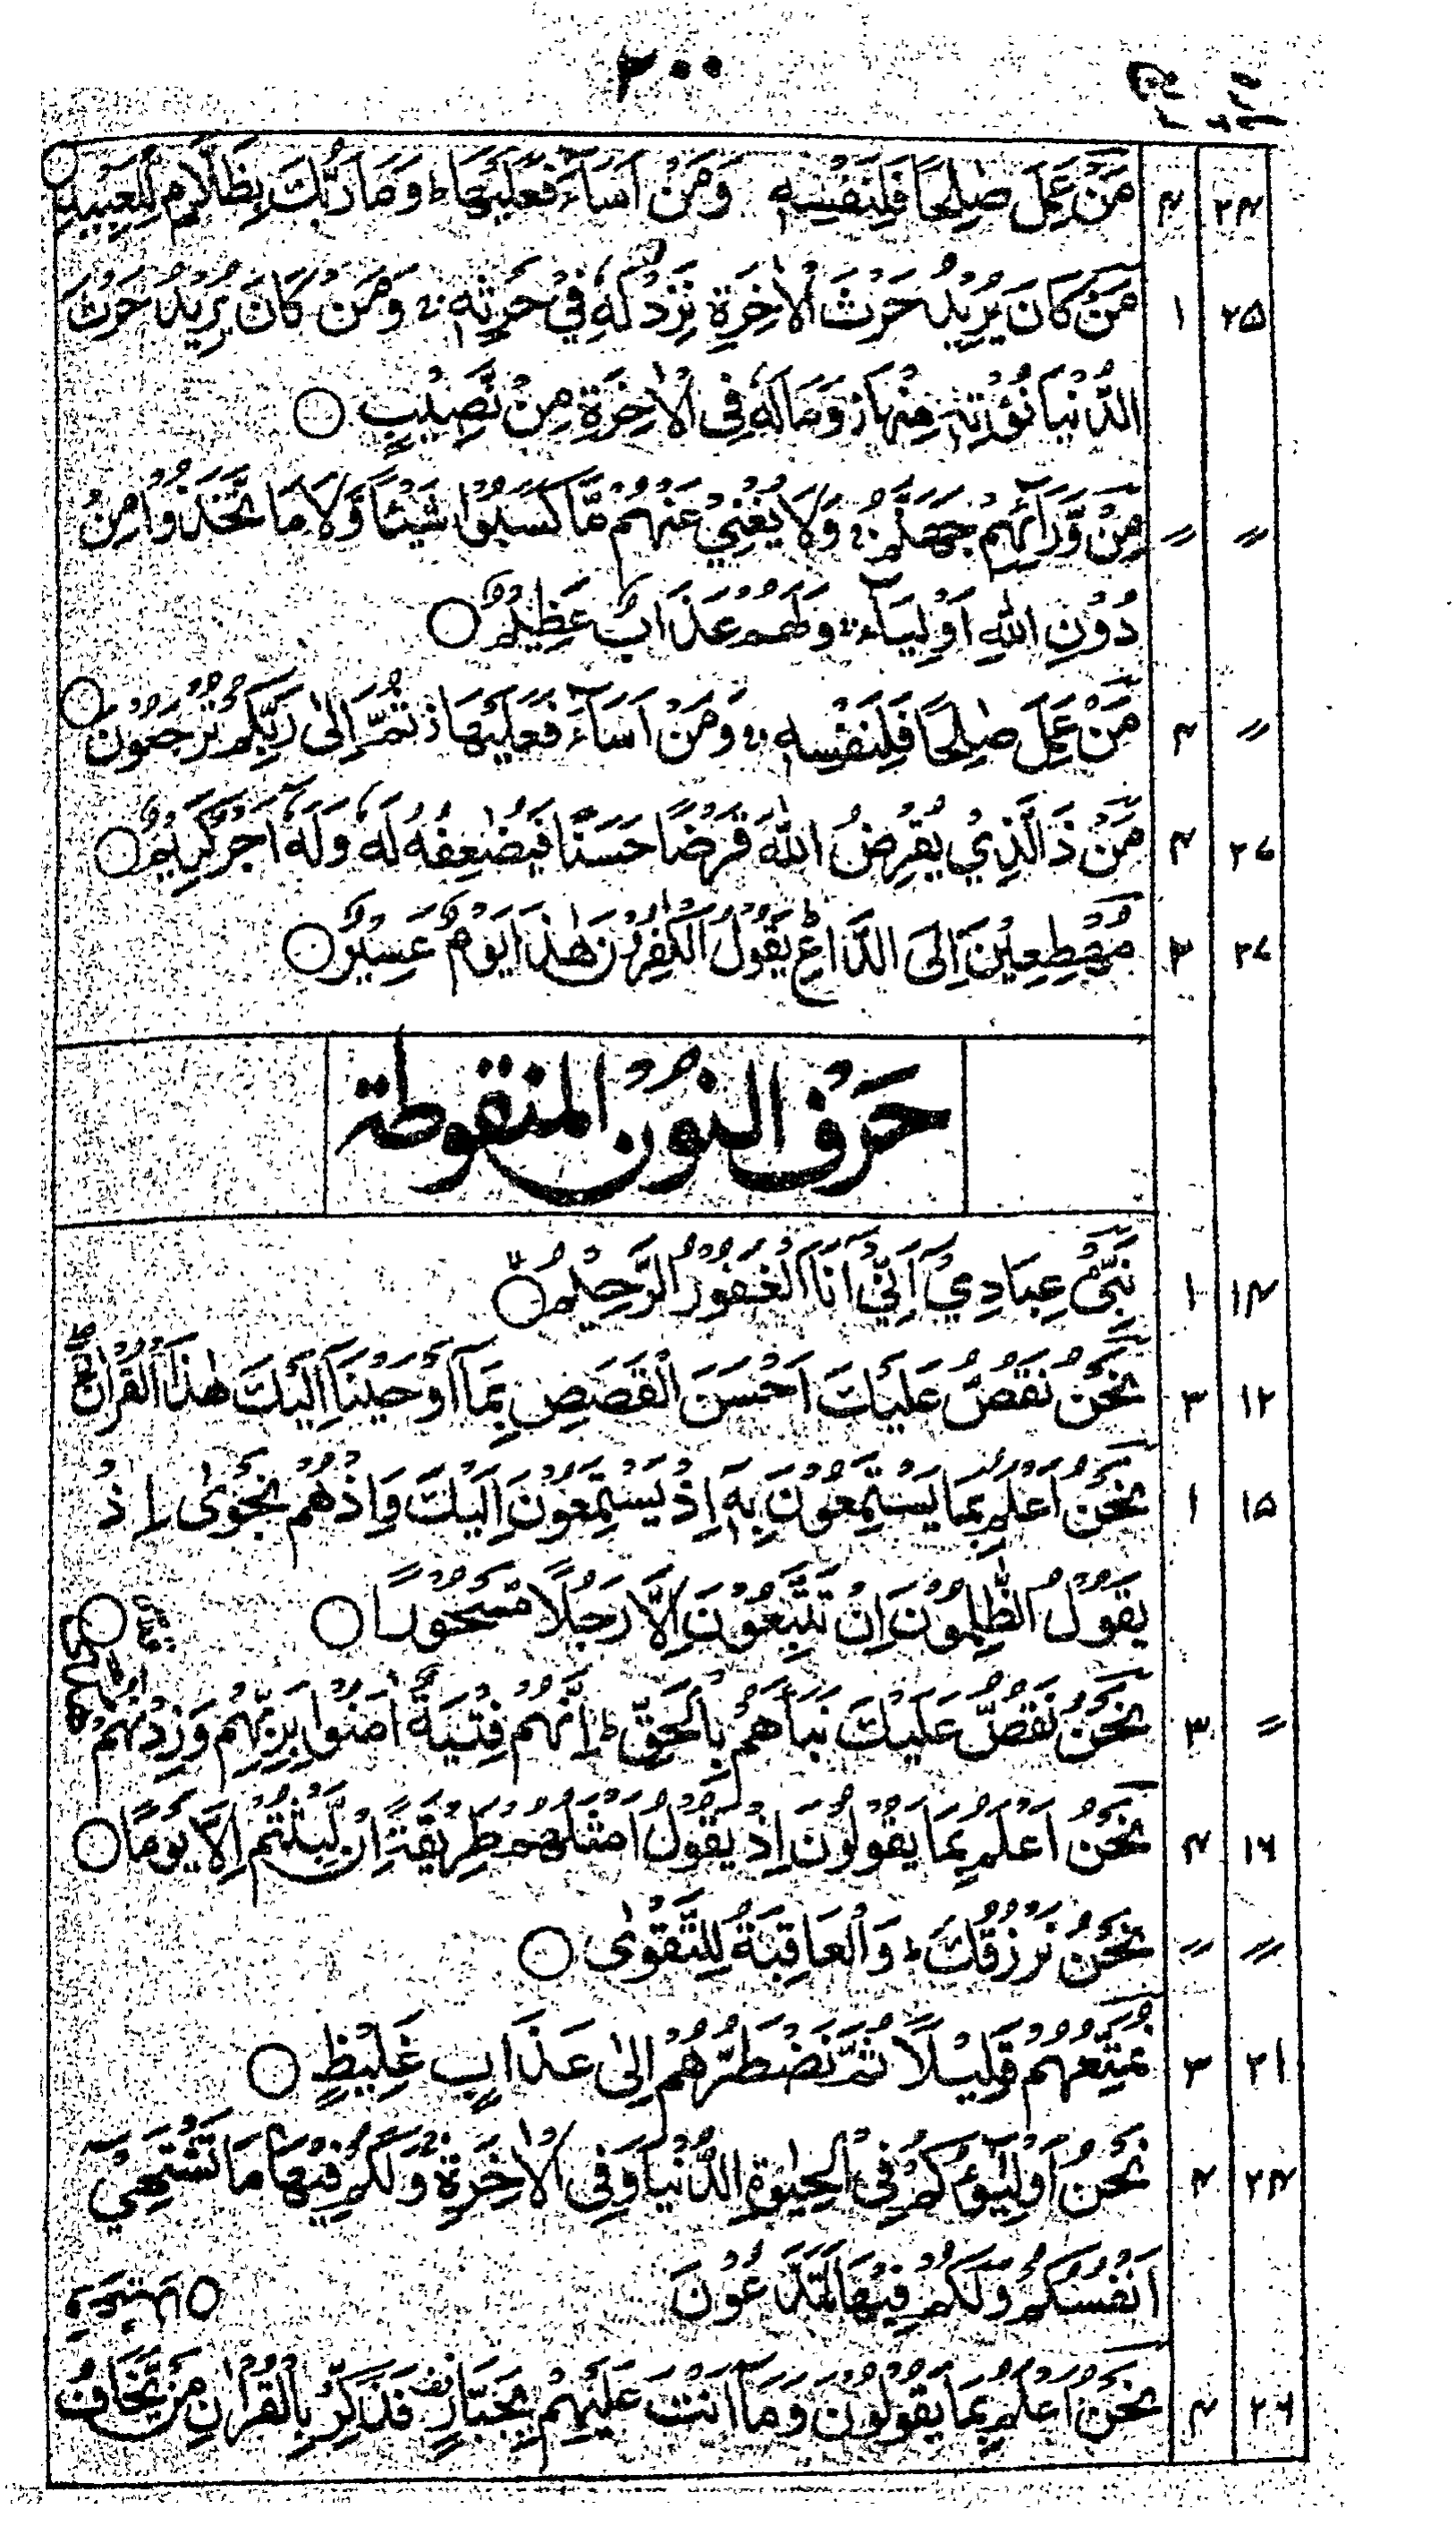 ۲۰۰
۲۴ ۴ مَنْ عَمِلَ صٰلِحًا فَلِنَفْسِهٖ وَمَنْ اَسَآءَ فَعَلَيْهَا ؕ وَمَا رَبُّكَ بِظَلَّامٍ لِّلْعَبِيْدِ ○
۲۵ ۱ مَنْ كَانَ يُرِيْدُ حَرْثَ الْاٰخِرَةِ نَزِدْ لَهٗ فِيْ حَرْثِهٖ ۚ وَمَنْ كَانَ يُرِيْدُ حَرْثَ
الدُّنْيَا نُؤْتِهٖ مِنْهَا ۙ وَمَا لَهٗ فِى الْاٰخِرَةِ مِنْ نَّصِيْبٍ ○
〃 〃 مِنْ وَّرَآئِهِمْ جَهَنَّمُ ۚ وَلَا يُغْنِيْ عَنْهُمْ مَّا كَسَبُوْا شَيْئًا وَّلَا مَا تَّخَذُوْا مِنْ
دُوْنِ اللّٰهِ اَوْلِيَآءَ ۚ وَلَهُمْ عَذَابٌ عَظِيْمٌ ○
〃 ۴ مَنْ عَمِلَ صٰلِحًا فَلِنَفْسِهٖ ۚ وَمَنْ اَسَآءَ فَعَلَيْهَا ۙ ثُمَّ اِلٰى رَبِّكُمْ تُرْجَعُوْنَ ○
۲۷ ۴ مَنْ ذَا الَّذِيْ يُقْرِضُ اللّٰهَ قَرْضًا حَسَنًا فَيُضٰعِفُهٗ لَهٗ وَلَهٗٓ اَجْرٌ كَرِيْمٌ ○
۲۷ ۲ مُهْطِعِيْنَ اِلَى الدَّاعِ ؕ يَقُوْلُ الْكٰفِرُوْنَ هٰذَا يَوْمٌ عَسِرٌ ○
حَرْفُ النُّوْنِ الْمَنْقُوْطَة
۱۴ ۱ نَبِّئْ عِبَادِيْٓ اَنِّيْٓ اَنَا الْغَفُوْرُ الرَّحِيْمُ ○
۱۲ ۳ نَحْنُ نَقُصُّ عَلَيْكَ اَحْسَنَ الْقَصَصِ بِمَآ اَوْحَيْنَآ اِلَيْكَ هٰذَا الْقُرْاٰنَ
۱۵ ۱ نَحْنُ اَعْلَمُ بِمَا يَسْتَمِعُوْنَ بِهٖٓ اِذْ يَسْتَمِعُوْنَ اِلَيْكَ وَاِذْ هُمْ نَجْوٰى اِذْ
يَقُوْلُ الظّٰلِمُوْنَ اِنْ تَتَّبِعُوْنَ اِلَّا رَجُلًا مَّسْحُوْرًا ○
〃 ۳ نَحْنُ نَقُصُّ عَلَيْكَ نَبَاَهُمْ بِالْحَقِّ ؕ اِنَّهُمْ فِتْيَةٌ اٰمَنُوْا بِرَبِّهِمْ وَزِدْنٰهُمْ
۱۶ ۴ نَحْنُ اَعْلَمُ بِمَا يَقُوْلُوْنَ اِذْ يَقُوْلُ اَمْثَلُهُمْ طَرِيْقَةً اِنْ لَّبِثْتُمْ اِلَّا يَوْمًا ○
〃 〃 نَحْنُ نَرْزُقُكَ ؕ وَالْعَاقِبَةُ لِلتَّقْوٰى ○
۲۱ ۳ نُمَتِّعُهُمْ قَلِيْلًا ثُمَّ نَضْطَرُّهُمْ اِلٰى عَذَابٍ غَلِيْظٍ ○
۲۴ ۴ نَحْنُ اَوْلِيٰٓؤُكُمْ فِى الْحَيٰوةِ الدُّنْيَا وَفِى الْاٰخِرَةِ ۚ وَلَكُمْ فِيْهَا مَا تَشْتَهِيْٓ
اَنْفُسُكُمْ وَلَكُمْ فِيْهَا مَا تَدَّعُوْنَ ○
۲۶ ۴ نَحْنُ اَعْلَمُ بِمَا يَقُوْلُوْنَ وَمَآ اَنْتَ عَلَيْهِمْ بِجَبَّارٍ فَذَكِّرْ بِالْقُرْاٰنِ مَنْ يَّخَافُ